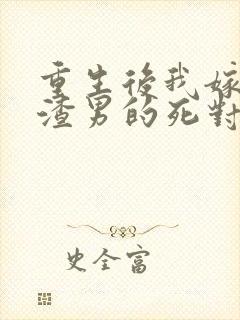 重生後我嫁
渣男的死對
史全富